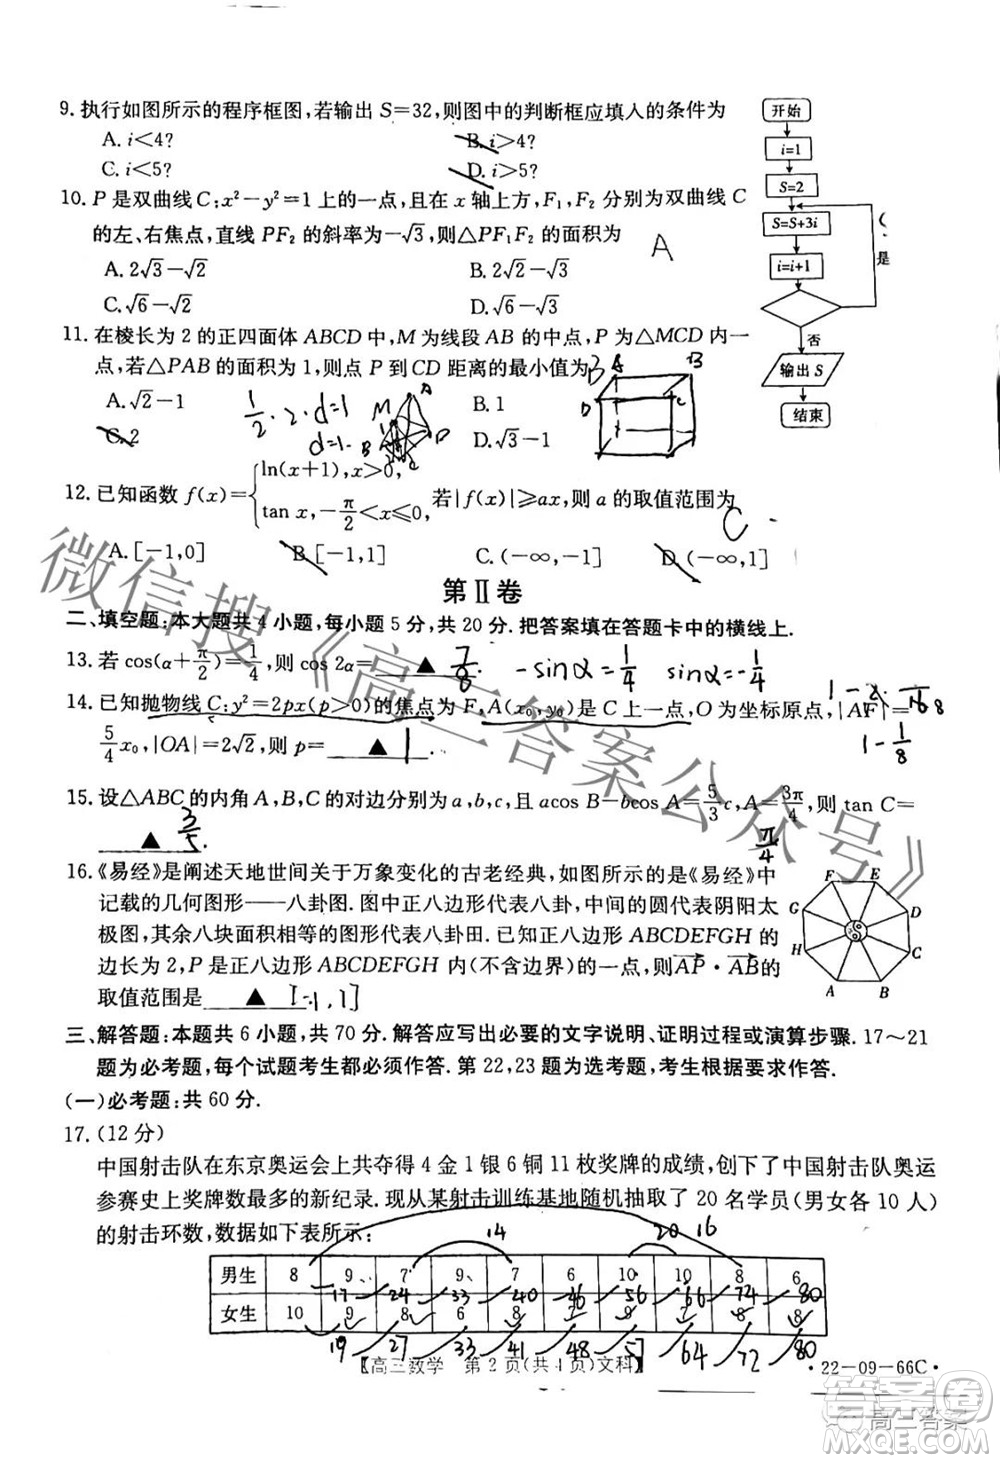 9. 执行如图所示的程序框图,若输出 S=32,则图中的判断框应填入的条件为
A. i<4?  B. i>4?
C. i<5?  D. i>5?
开始
i=1
S=2
S=S+3i
i=i+1
是
否
输出 S
结束
10. P 是双曲线 C:x²-y²=1 上的一点,且在 x 轴上方,F₁,F₂ 分别为双曲线 C
的左、右焦点,直线 PF₂ 的斜率为-√3,则△PF₁F₂ 的面积为
A
A. 2√3-√2  B. 2√2-√3
C. √6-√2  D. √6-√3
11. 在棱长为 2 的正四面体 ABCD 中,M 为线段 AB 的中点,P 为△MCD 内一
点,若△PAB 的面积为 1,则点 P 到 CD 距离的最小值为
B
A. √2-1  B. 1
C. 2  D. √3-1
1/2·2·d=1
d=1
M A B D
A B D C
12. 已知函数 f(x)={ln(x+1),x>0, tan x,-π/2<x≤0, 若|f(x)|≥ax,则 a 的取值范围为
C
A. [-1,0]  B. [-1,1]  C. (-∞,-1]  D. (-∞,1]
第Ⅱ卷
二、填空题:本大题共 4 小题,每小题 5 分,共 20 分.把答案填在答题卡中的横线上.
13. 若 cos(α+π/2)=1/4,则 cos 2α= ▲ 7/8
-sinα=1/4  sinα=-1/4
14. 已知抛物线 C:y²=2px(p>0)的焦点为 F,A(x₀,y₀)是 C 上一点,O 为坐标原点,|AF|=
5/4 x₀,|OA|=2√2,则 p= ▲ 1
1-1/8
15. 设△ABC 的内角 A,B,C 的对边分别为 a,b,c,且 acos B-bcos A=5/3 c,A=3π/4,则 tan C=
▲ 3/5
π/4
16.《易经》是阐述天地世间关于万象变化的古老经典,如图所示的是《易经》中
记载的几何图形——八卦图.图中正八边形代表八卦,中间的圆代表阴阳太
极图,其余八块面积相等的图形代表八卦田.已知正八边形 ABCDEFGH 的边长
为 2,P 是正八边形 ABCDEFGH 内(不包括边界)的一点,则 AP·AB 的
取值范围是 ▲ [-1,1]
F E
G D
H C
A B
三、解答题:本题共 6 小题,共 70 分.解答应写出必要的文字说明、证明过程或演算步骤.17~21
题为必考题,每个试题考生都必须作答.第 22,23 题为选考题,考生根据要求作答.
(一)必考题:共 60 分.
17.(12 分)
中国射击队在东京奥运会上共夺得 4 金 1 银 6 铜 11 枚奖牌的成绩,创下了中国射击队奥运
参赛史上奖牌数最多的新纪录.现从某射击训练基地随机抽取了 20 名学员(男女各 10 人)
的射击环数,数据如下表所示:
14 20 16
男生 8 9 7 9 7 6 10 10 8 6
17 24 33 40 46 56 66 74 80
女生 10 9 8 6 8 7 8 8 8
19 27 33 41 48 57 64 72 80
【高三数学 第 2 页(共 4 页)文科】
·22-09-66C·
微信搜《高三答案公众号》
答案圈
MXQE.COM
高三答案